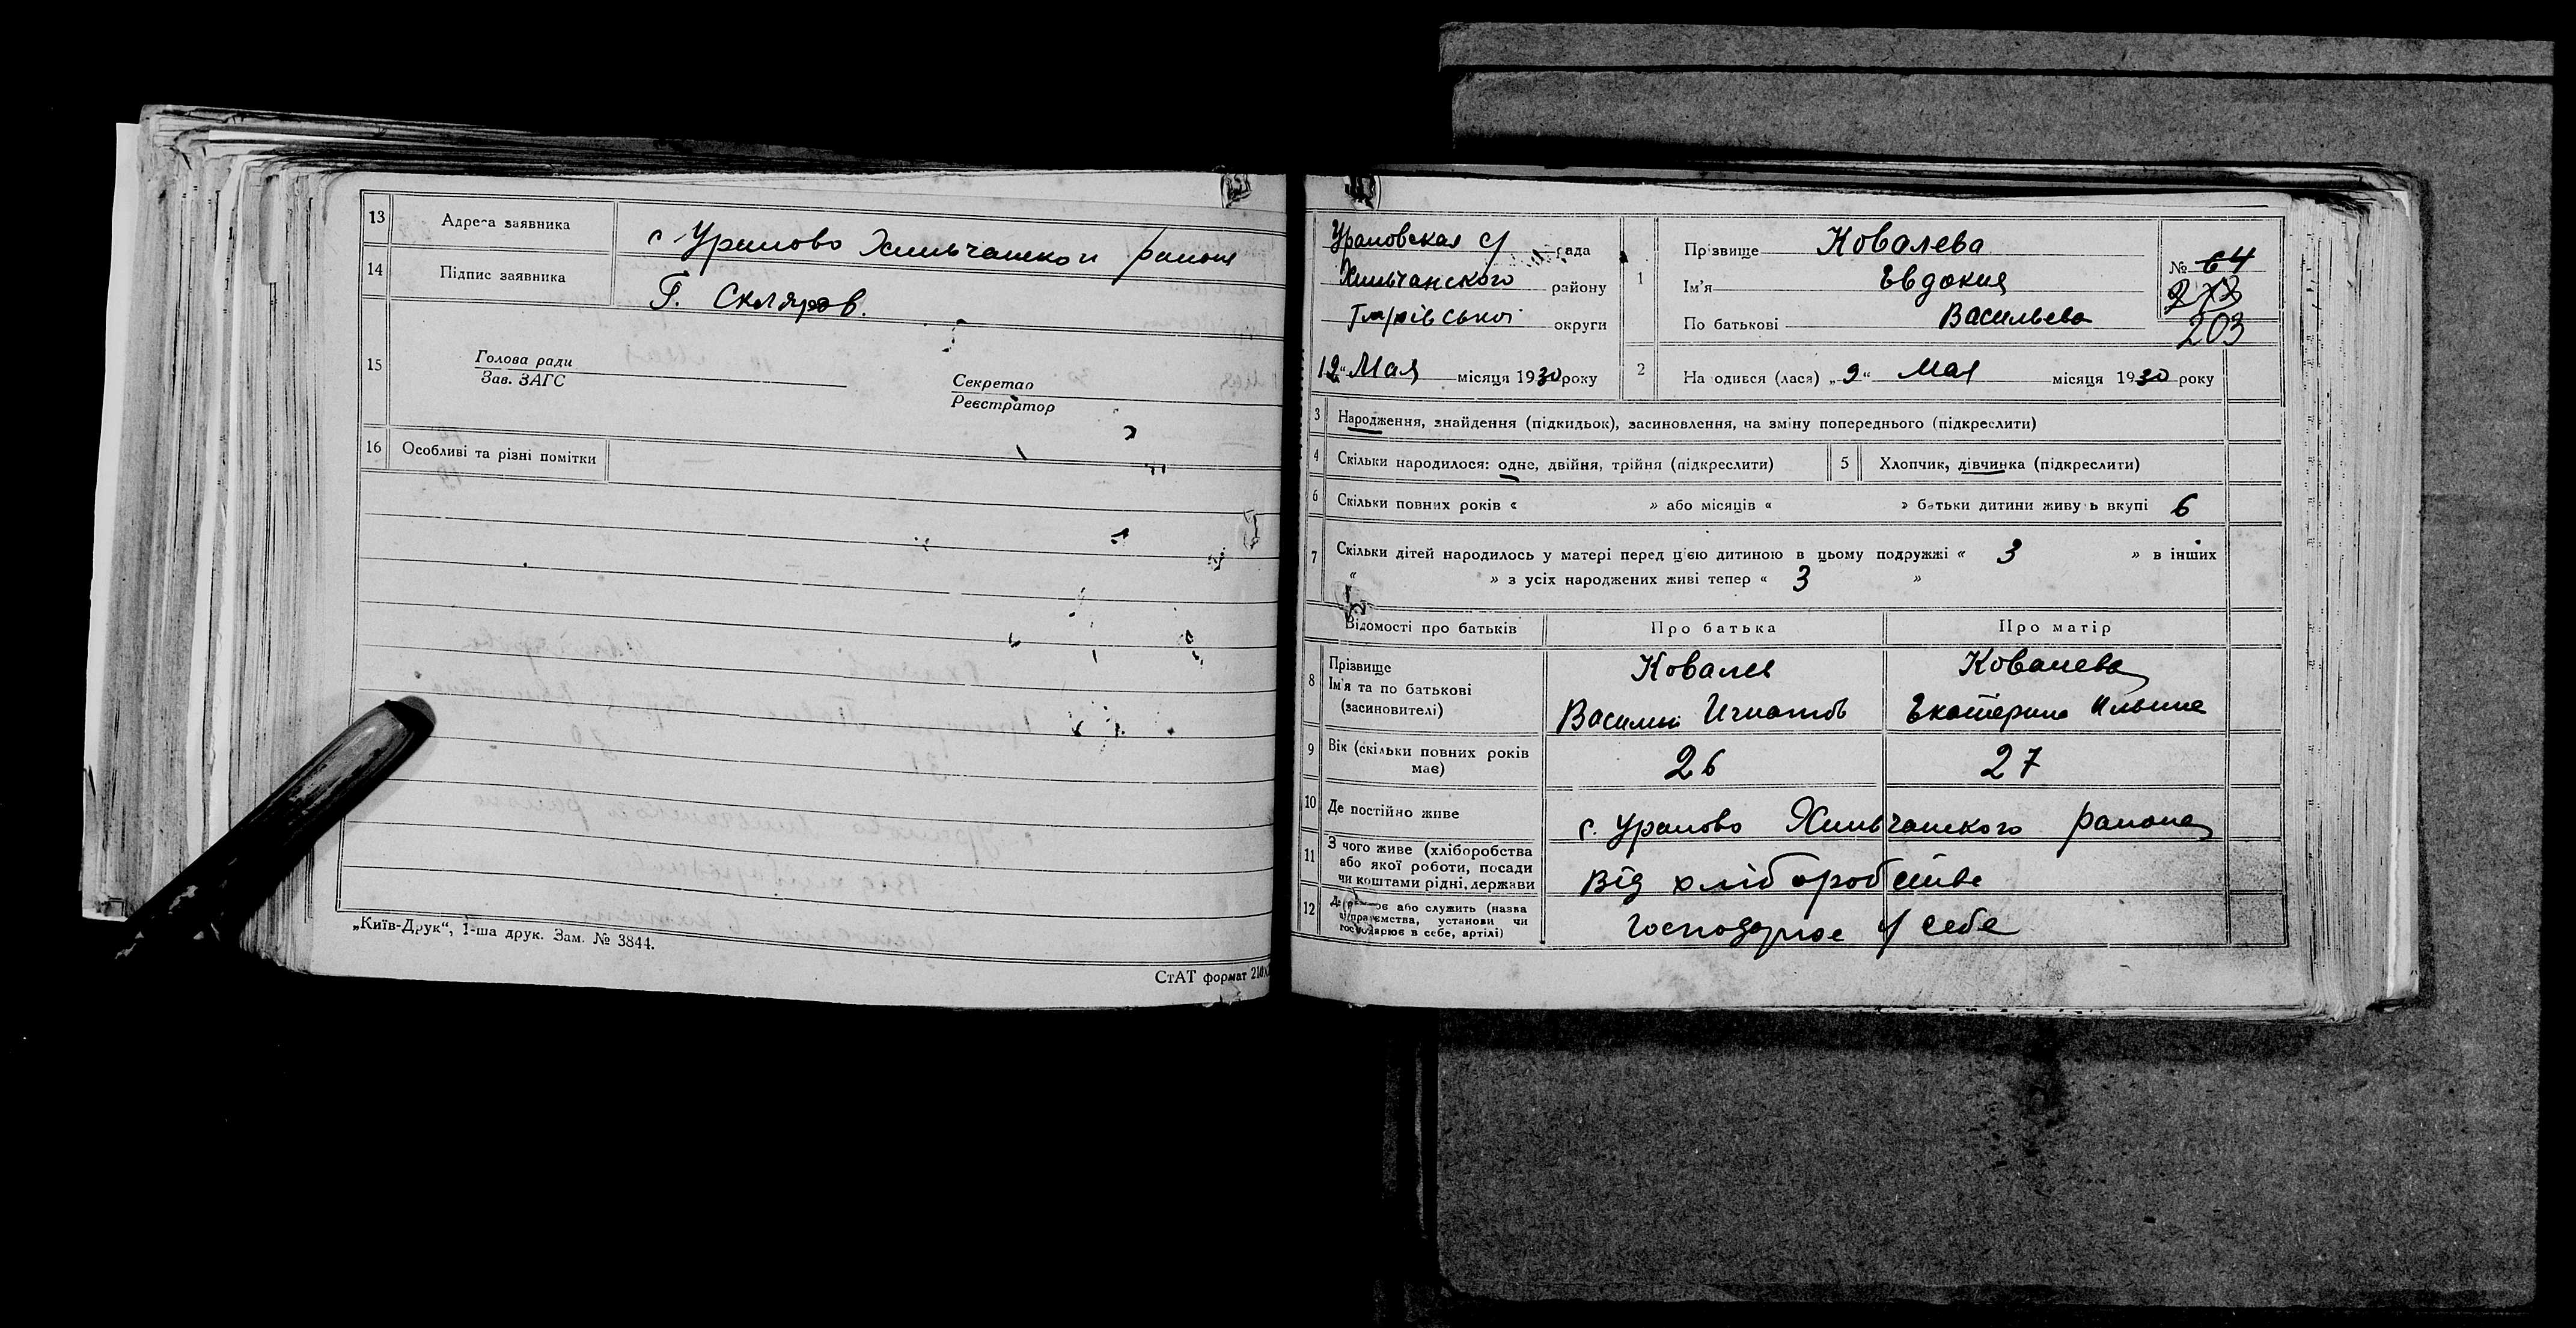 13 Адреса заявника с. Ураково Хмильчанскои района
14 Підпис заявника Г. Скляров.
15 Голова ради
Зав. ЗАГС
Секретар
Реєстратор
16 Особливі та різні помітки
„Київ-Друк“, 1-ша друк. Зам. № 3844.
СтАТ формат 210х
с/ рада
району
округи
12 „ Мая місяця 1930 року
1 Прізвище Ковалева
Ім'я Евдокия
По батькові Васильева
№ 64
203
2 Народився (лася) „9“ Мая місяця 1930 року
3 Народження, знайдення (підкидьок), засиновлення, на зміну попереднього (підкреслити)
4 Скільки народилося: одне, двійня, трійня (підкреслити)
5 Хлопчик, дівчинка (підкреслити)
6 Скільки повних років « » або місяців « » батьки дитини живуть вкупі 6
7 Скільки дітей народилось у матері перед цією дитиною в цьому подружжі « 3 » в інших
« » з усіх народжених живі тепер « 3 »
Відомості про батьків Про батька Про матір
8 Прізвище Ковалев Ковалева
Ім'я та по батькові
(засиновителі) Василий Игнатов Екатерина Ильина
9 Вік (скільки повних років
має) 26 27
10 Де постійно живе с. района
11 З чого живе (хліборобства
або якої роботи, посади
чи коштами рідні, держави Від хліборобства
12 або служить (назва
підприємства, установи чи
господарює в себе, артілі) господарює у себе